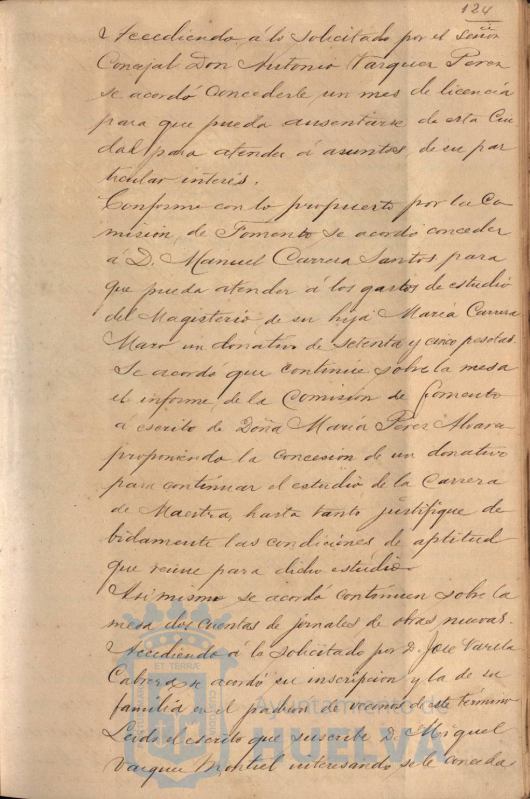 124
Accediendo á lo solicitado por el Señor
Concejal Don Antonio Vazquez Perez
se acordó concederle un mes de licencia
para que pueda ausentarse de esta Ciu
dad para atender á asuntos de su par
ticular interés.
Conforme con lo propuesto por la Co
misión de Fomento se acordó conceder
á D. Manuel Carrera Santos para
que pueda atender á los gastos de estudio
del Magisterio de su hija María Carrera
Maró un donativo de setenta y cinco pesetas.
Se acordó que continue sobre la mesa
el informe de la Comisión de Fomento
á escrito de Doña María Perez Alvara
proponiendo la concesión de un donativo
para continuar el estudio de la Carrera
de Maestra, hasta tanto justifique de
bidamente las condiciones de aptitud
que reune para dicho estudio
Asi mismo se acordó continuen sobre la
mesa dos cuentas de jornales de obras nuevas.
Accediendo á lo solicitado por D. José Varela
Cabrera se acordó su inscripcion y la de su
familia en el padron de vecinos de este término
Leido el escrito que suscribe D. Miguel
Vazquez Montiel interesando se le conceda
Ayuntamiento de
HUELVA